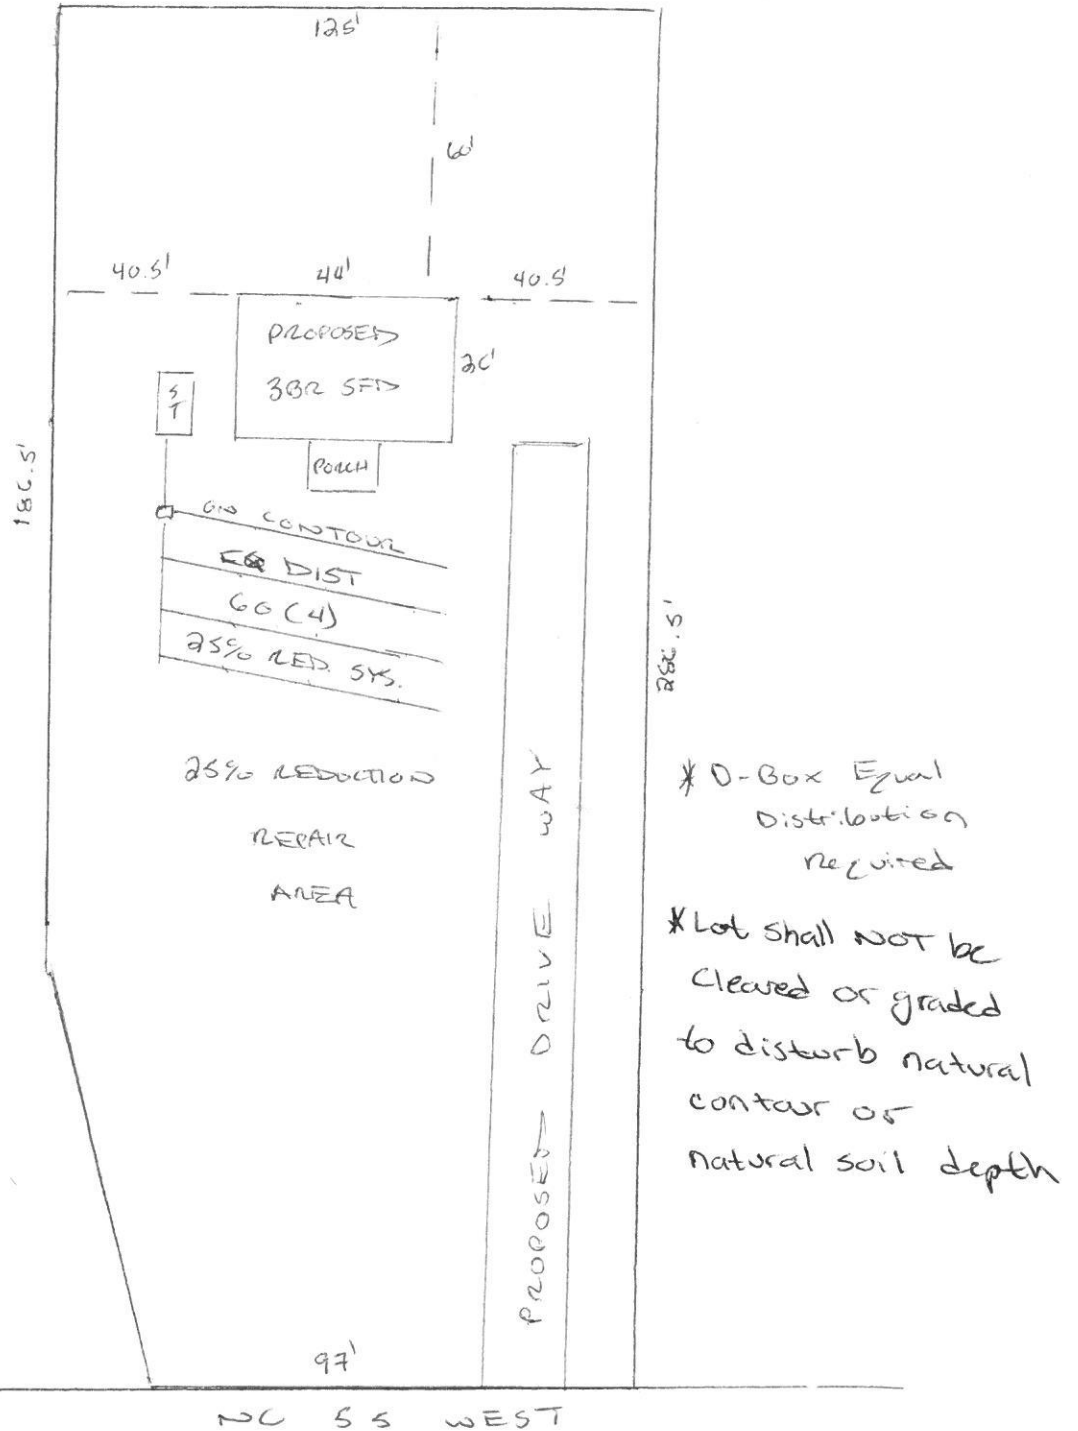 125'
60'
40.5'
44'
40.5'
PROPOSED
3BR SFD
ST
PORCH
186.5'
ON CONTOUR
EQ DIST
60 (4)
25% RED. SYS.
25% REDUCTION
REPAIR
AREA
PROPOSED DRIVE WAY
* D-Box Equal
Distribution
Required
* Lot shall NOT be
Cleared or graded
to disturb natural
contour or
natural soil depth
97'
NC 55 WEST